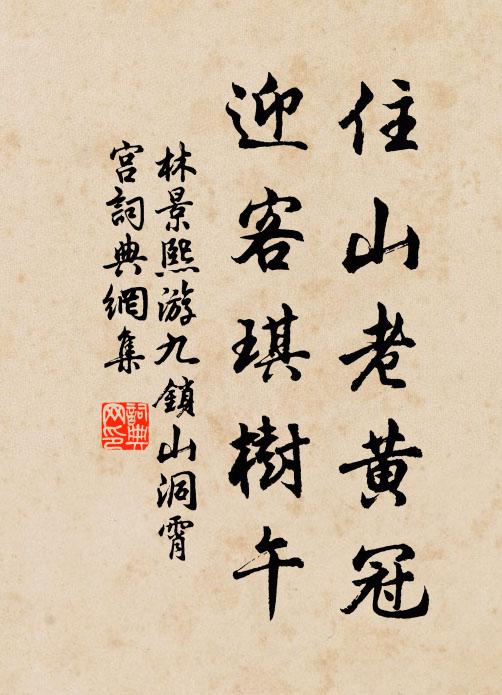 住山老黄冠
迎客琪樹午
林景熙游九鎖山洞霄
宫詞典網集
詞典网印